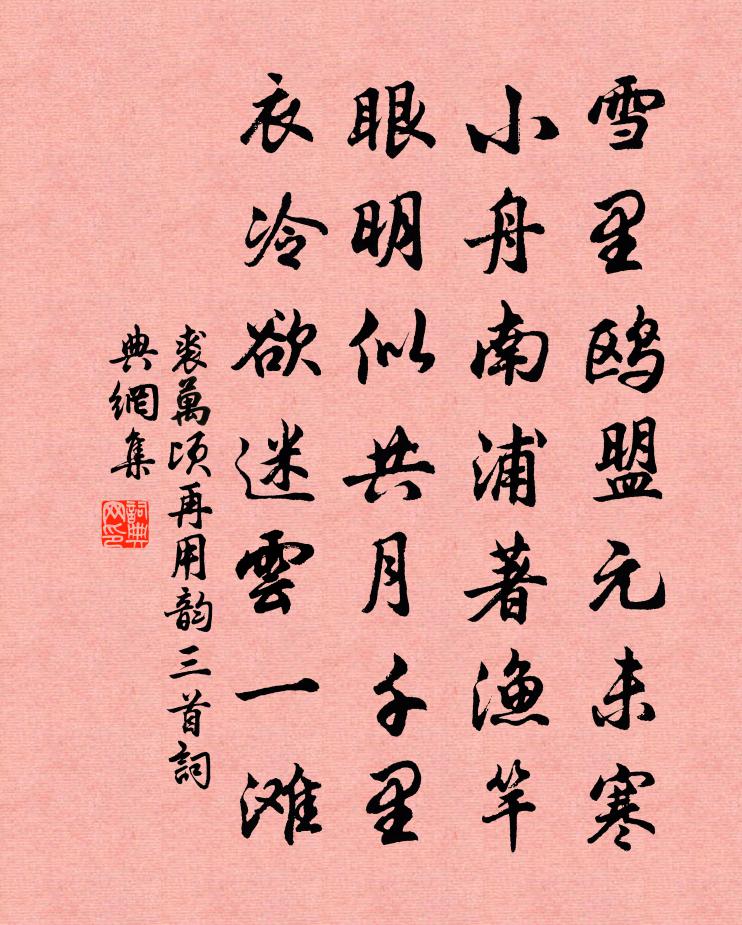 雪里鸥盟元未寒
小舟南浦著渔竿
眼明似共月千里
衣冷欲迷雲一滩
裘萬顷再用韵三首詞
典網集
詞典
网印